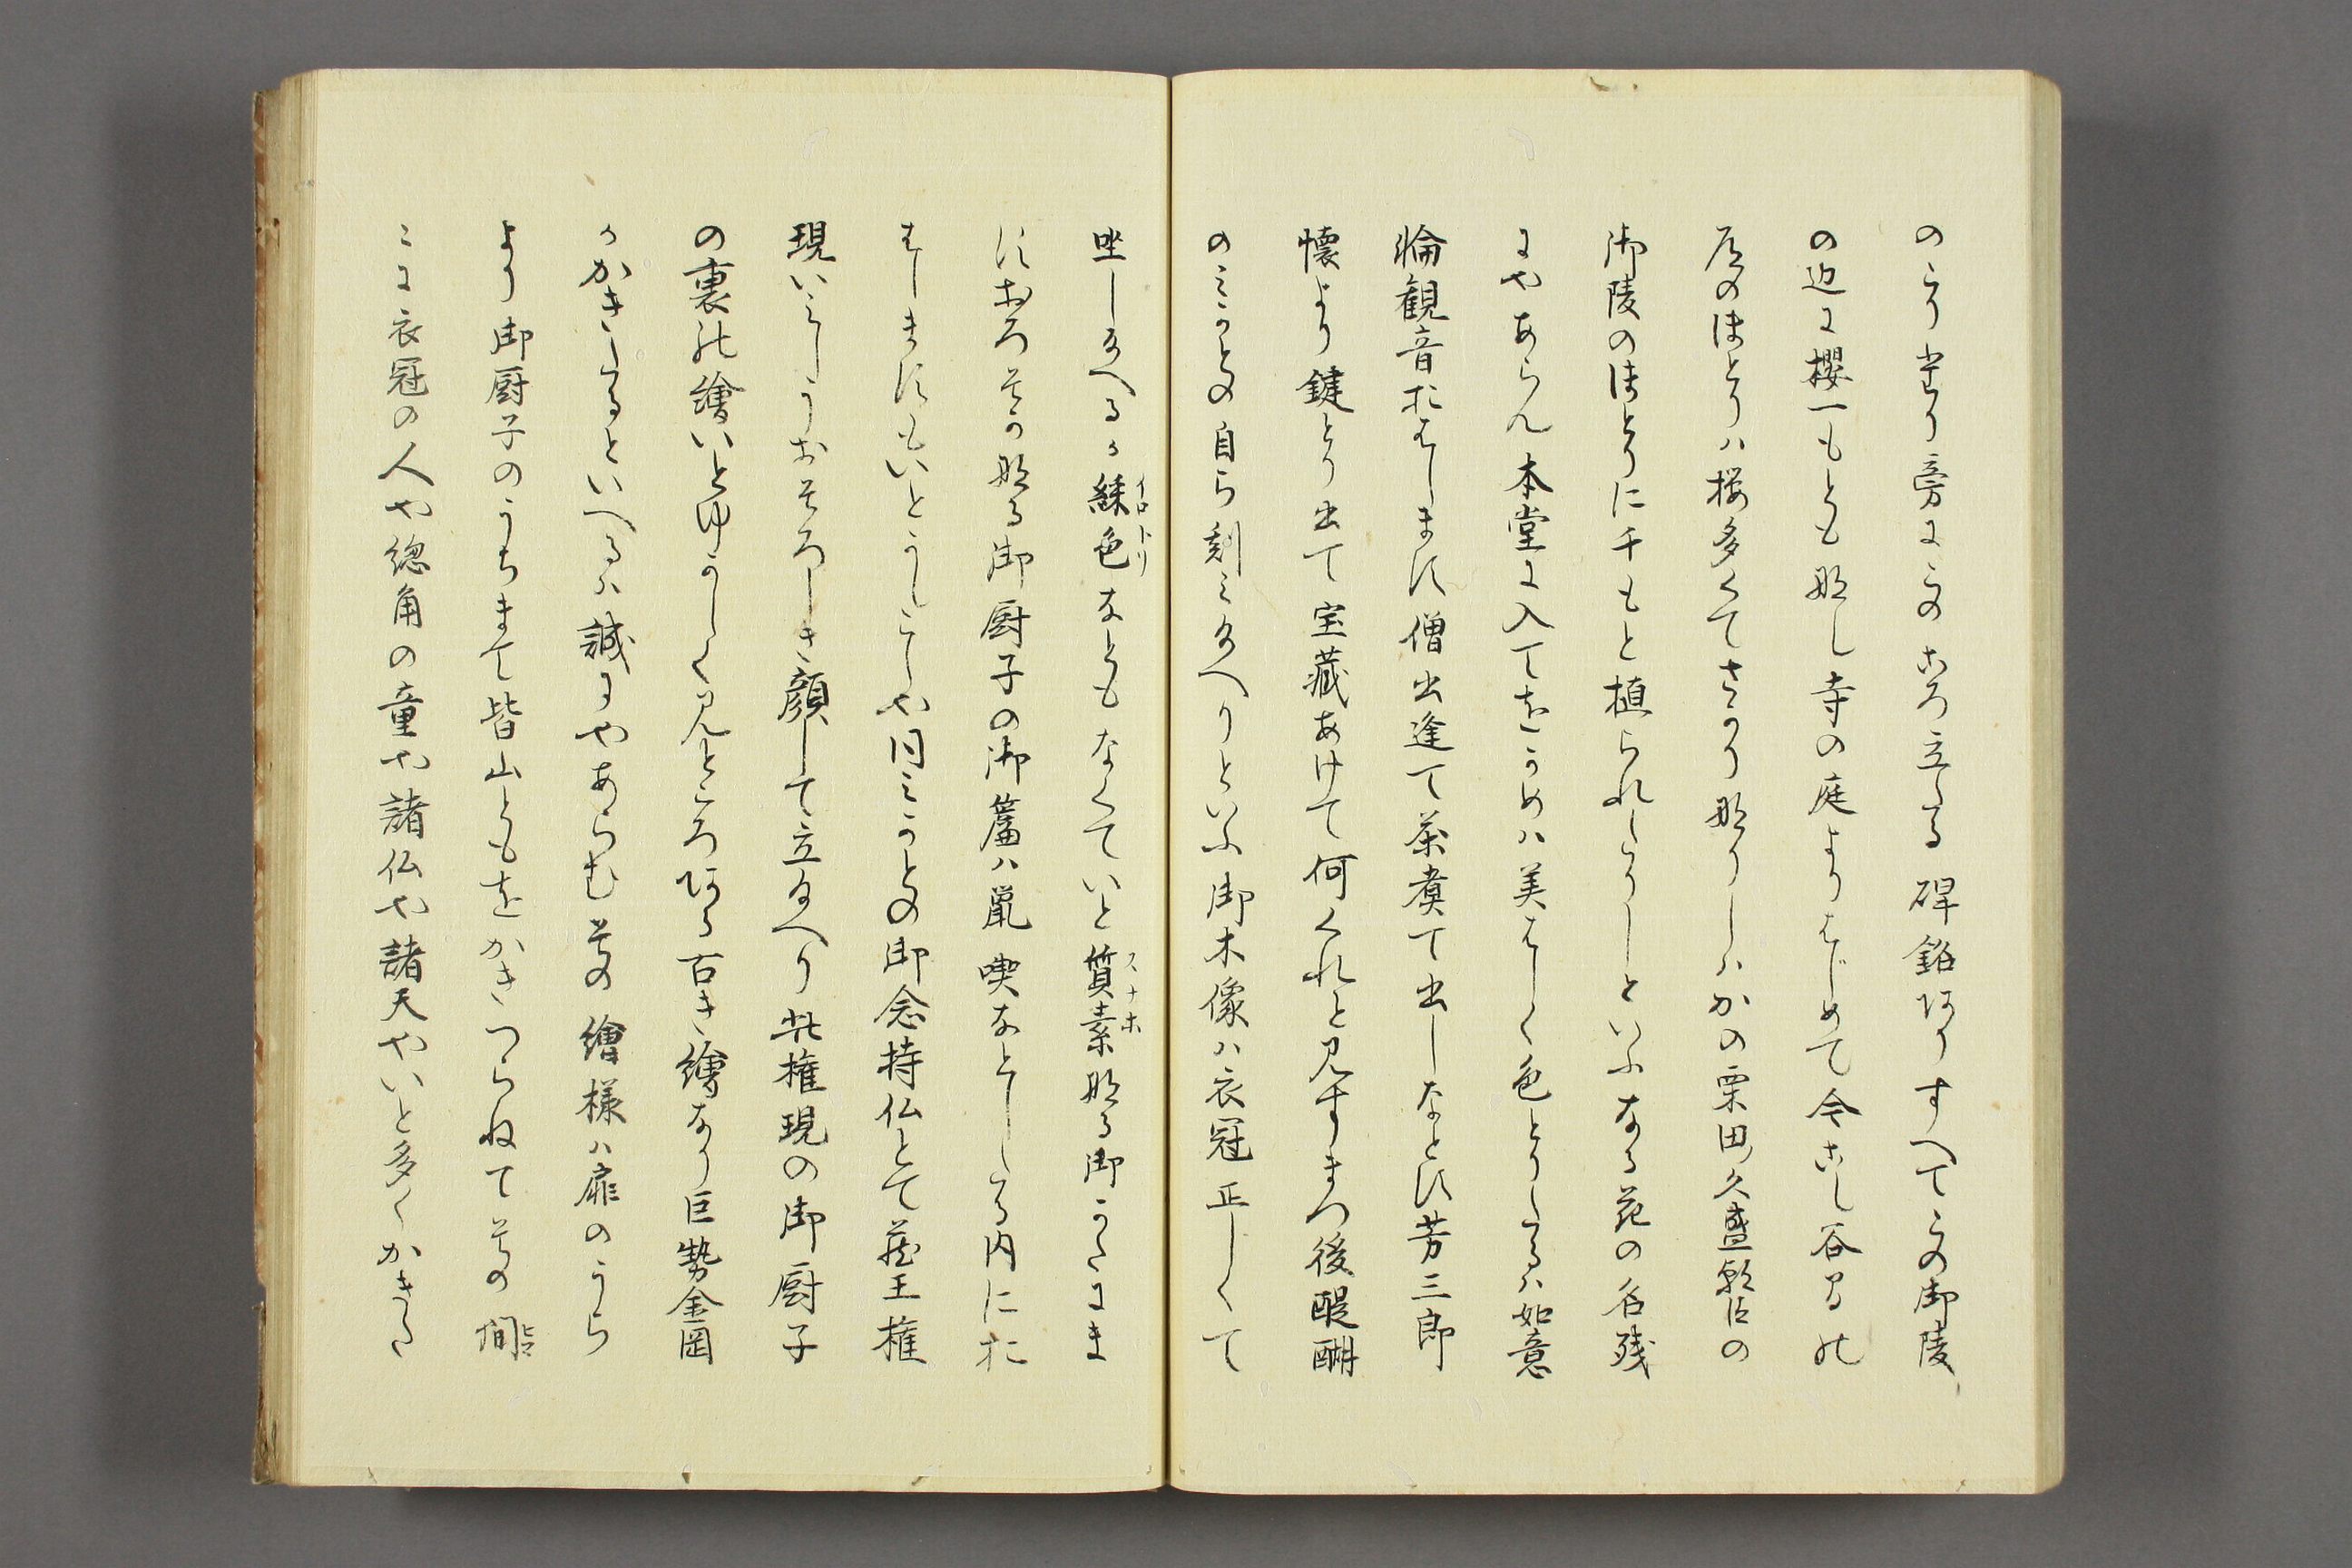 のこり垂り旁にこのころ立たる碑銘ありすへてこの御陵
の辺に櫻一もとも那し寺の庭よりはじめて今こし谷間の
尽のほとりハ桜多くてさかり那りしハかの栗田久盛翁の
御陵のほとりに千もと植られたりしといふなる花の名残
にやあらん本堂に入てをかめハ美はしく色とりたるハ如意
輪観音おはします僧出逢て茶煑て出しなとす芳三郎
懐より鍵とり出て宝蔵あけて何くれと見すまつ後醍醐
のみかとの自ら刻み給へりといふ御木像ハ衣冠正しくて
坐し給へるか綵色なともなくていと質素那る御かたにま
すおろそか那る御厨子の御簾ハ鼠喫なとしたる内にお
はしますもいとうしこしや同みかとの御念持仏とて蔵王権
現いミしうおそろしき顔して立給へり此権現の御厨子
の裏の繪いとゆかしく見ところある古き繪なり巨勢金岡
かかきたるといへるハ誠にやあらむその繪様ハ扉のうら
より御厨子のうちまて皆山ともをかきつらねてその間
ここに衣冠の人や総角の童や諸仏や諸天やいと多くかきた
イロトリ
スナホ